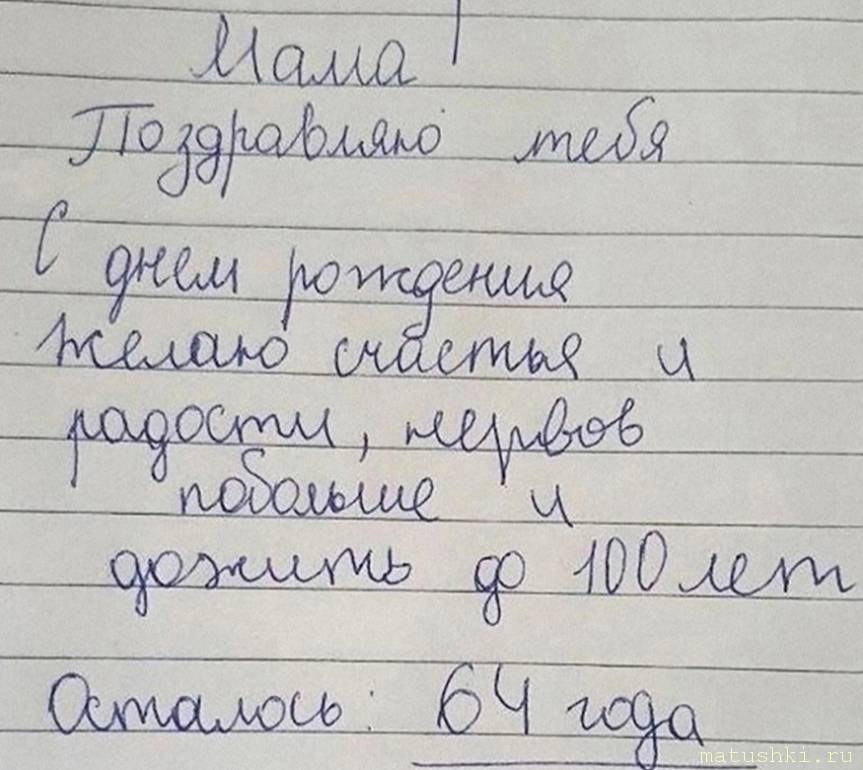 Мама
Поздравляю тебя
С днем рождения
желаю счастья и
радости, нервов
побольше и
дожить до 100 лет
Осталось: 64 года
matushki.ru